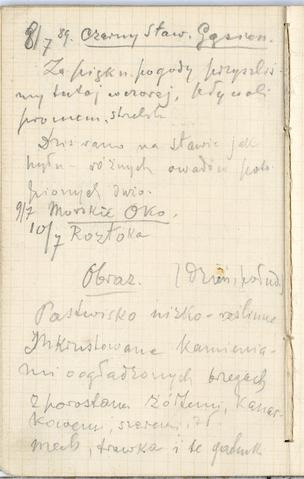 8/7 89. Czarny Staw. Gąsien.
Za piękn. pogody przyszliś-
my tutaj wczoraj,
promem,
Dziś rano na stawie jak
było - różnych owadów poto-
pionych dwo.
9/7 Morskie Oko.
10/7 Roztoka
Obraz. (Dzień, połud.)
Pastwisko nizko-roślinne
Inkrustowane kamienia-
mi o ogładzonych brzegach
z porostami żółtemi, kanar-
kowemi, szaremi, itd
mech, trawka i te